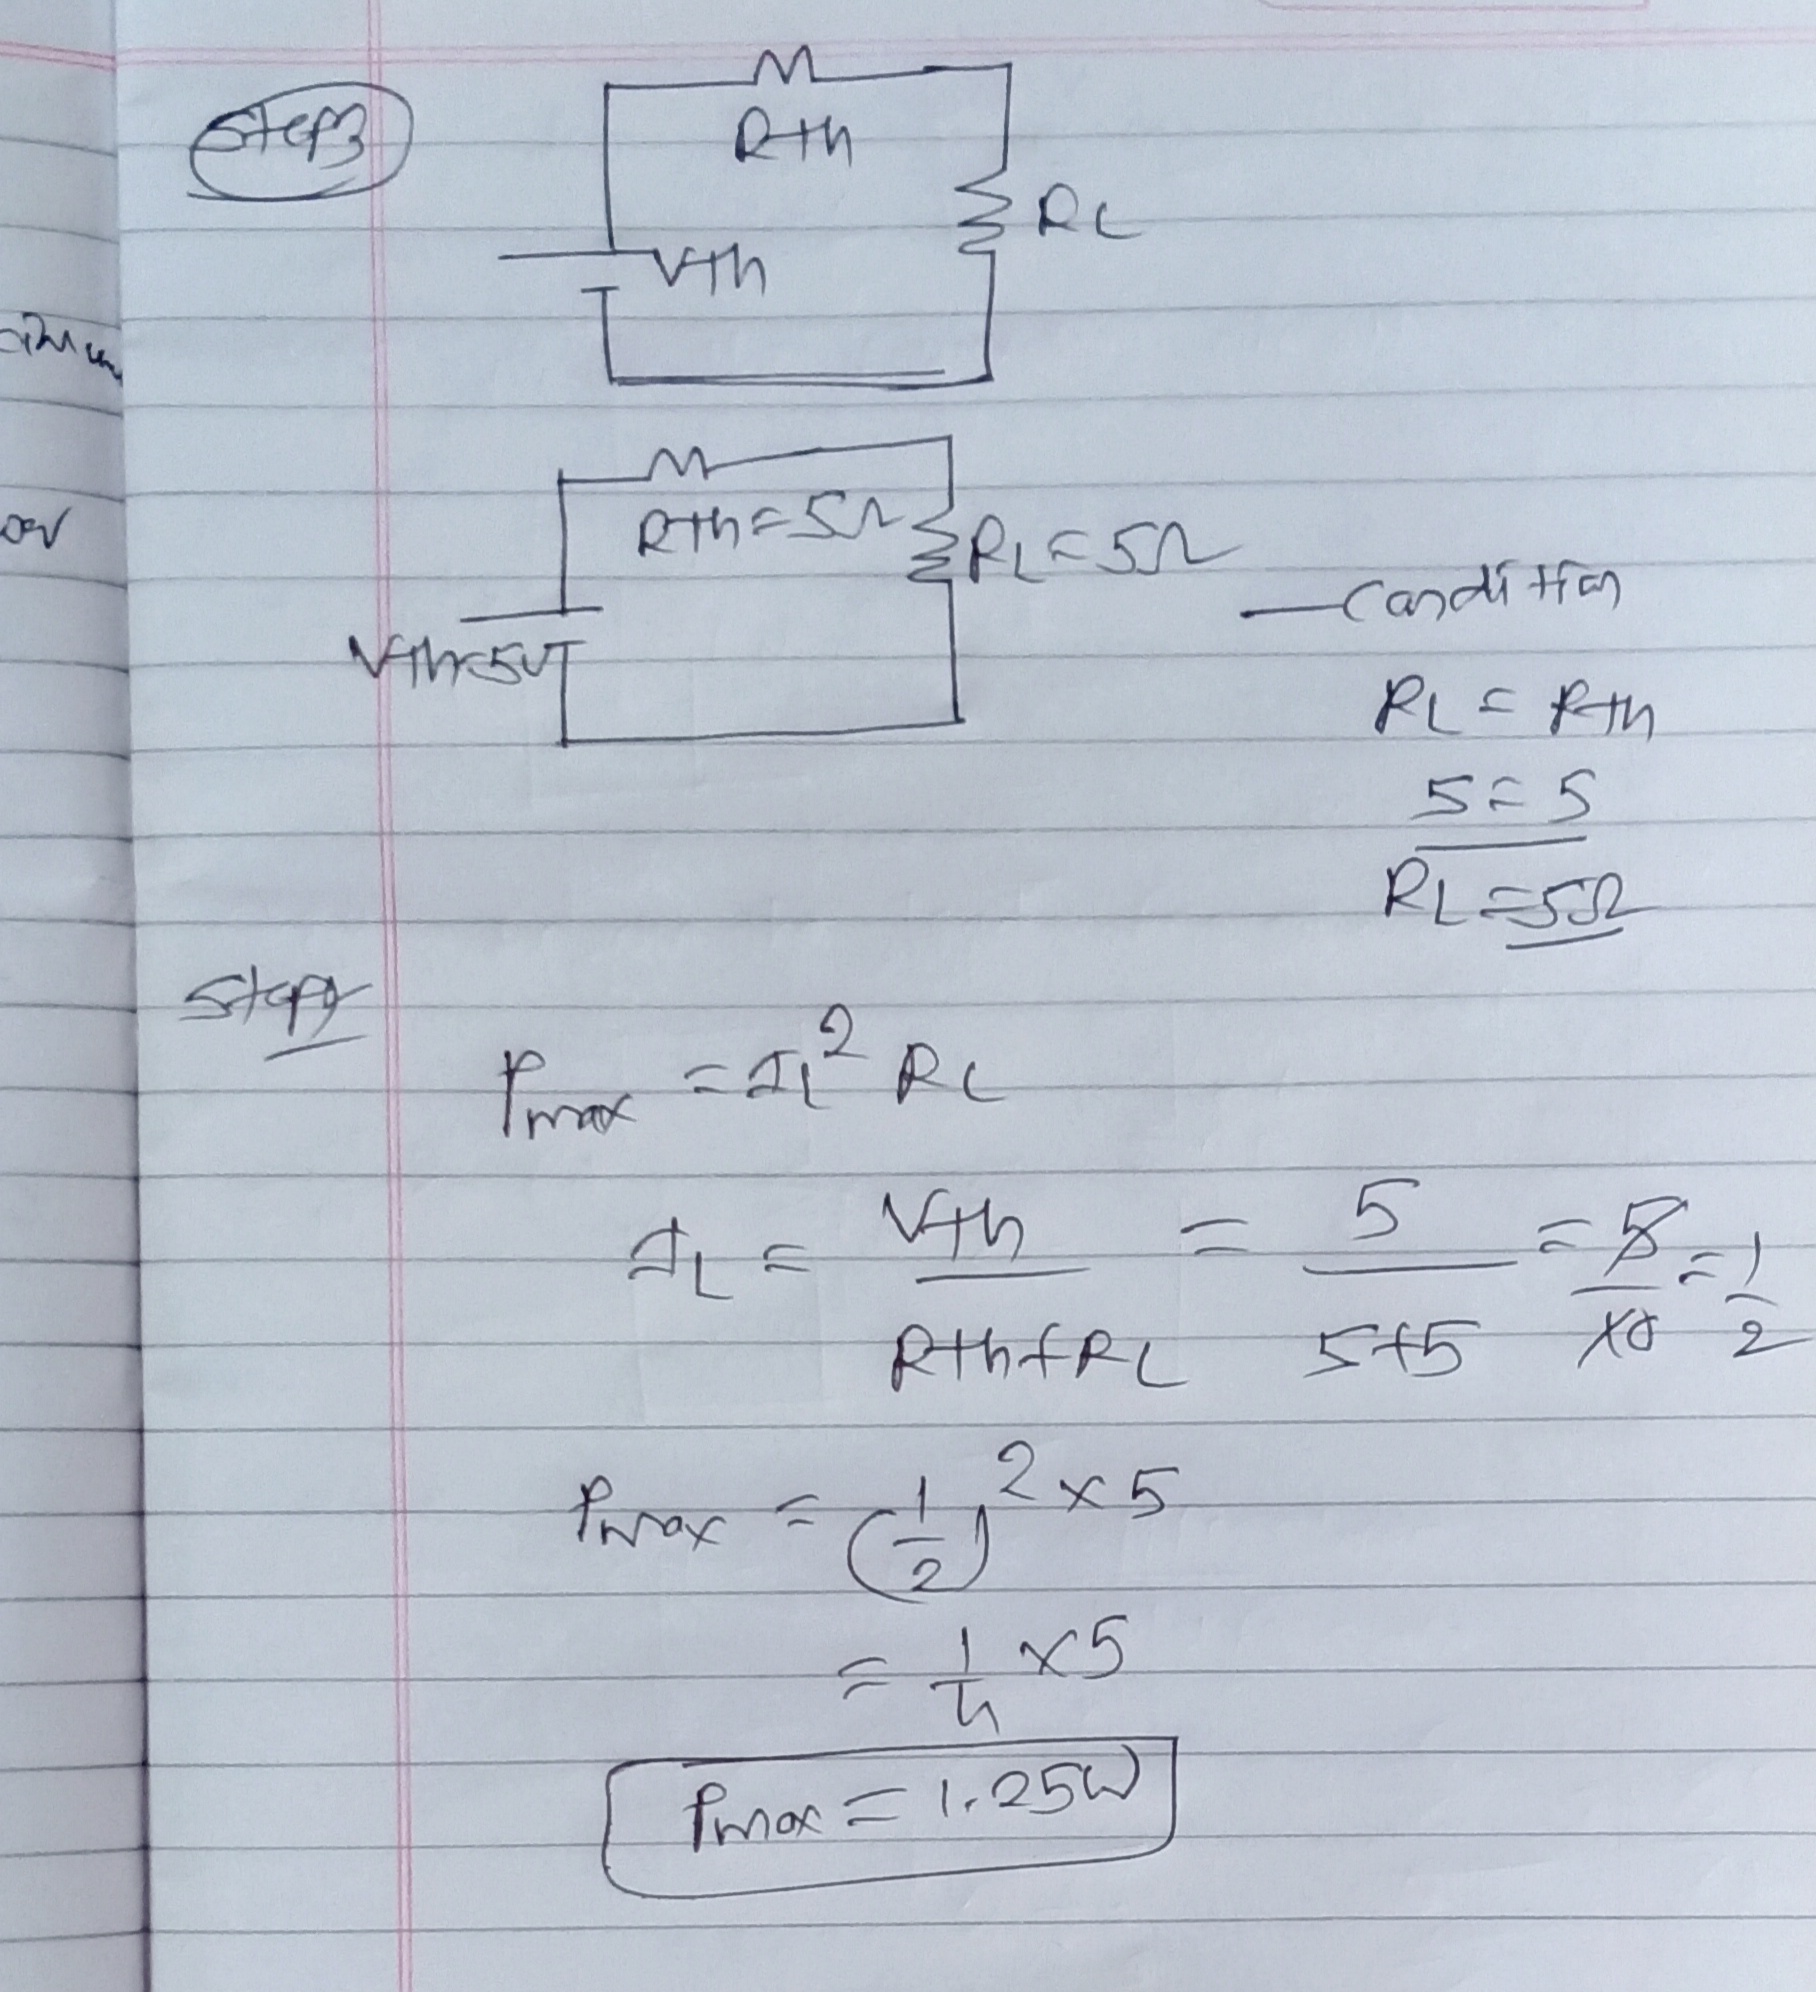 Step3
Rth
RL
Vth
Rth = 5Ω
RL = 5Ω
Vth=5V
— Condition
RL = Rth
5 = 5
RL = 5Ω
Step4
Pmax = IL² RL
IL = Vth / Rth+RL = 5 / 5+5 = 5/10 = 1/2
Pmax = (1/2)² × 5
= 1/4 × 5
Pmax = 1.25W